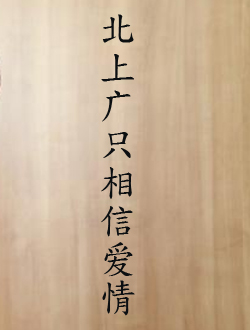 北上广只相信爱情